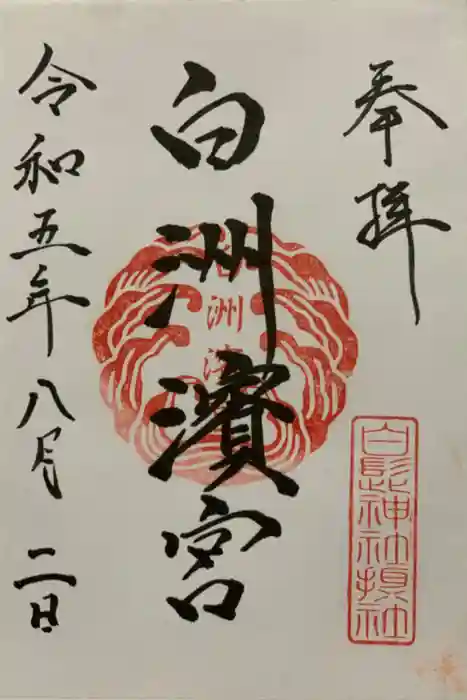 奉拝
白髭神社損社
白洲濱宮
令和五年八月二日